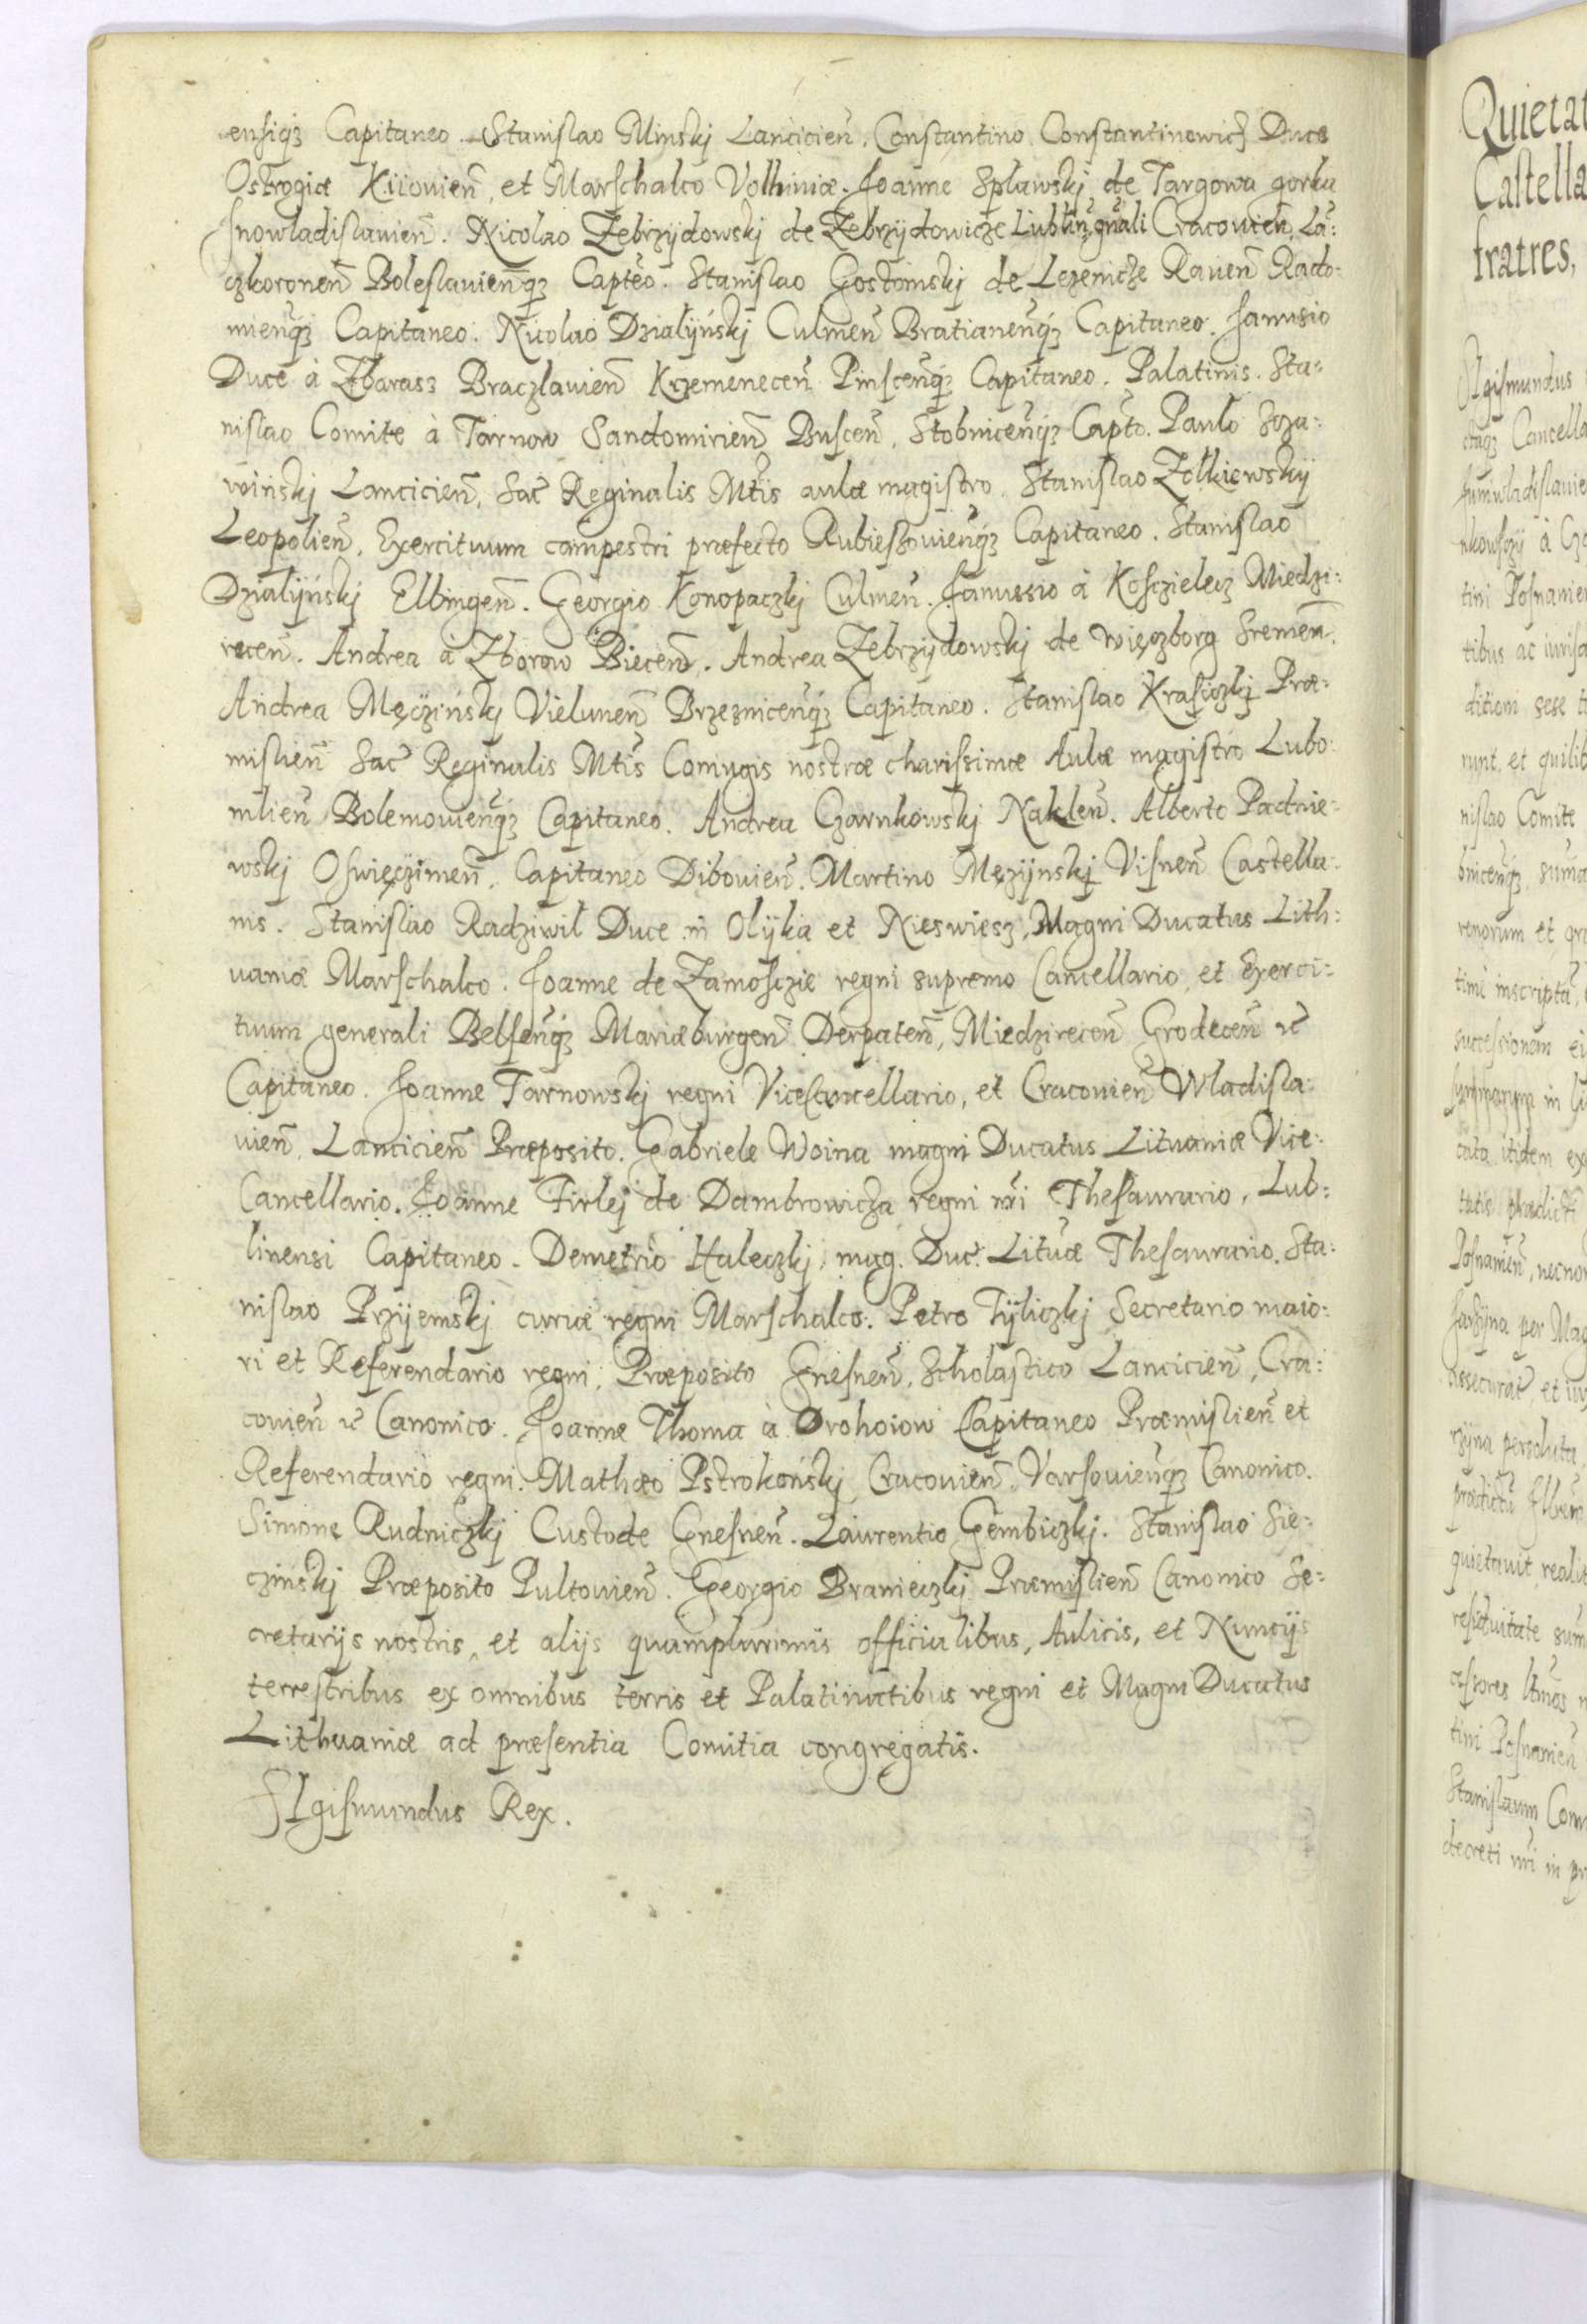 ensiqꝫ Capitaneo. Stanislao Minskj Lancicien̄. Constantino Constantinowicz Duce
Ostrogiæ Kiiovien̄, et Marschalco Volhiniæ. Joanne Splawskj de Targowa gorka
Jnowladislavien̄. Nicolao Zebrzydowskj de Zebrzydowicze Lublin̄, gn̄ali Cracovien̄, Lā:
czkoronen̄ Boleslavien̄qꝫ Capt̄eo. Stanislao Gostomskj de Lezenicze Raven̄ Rado:
mien̄qꝫ Capitaneo. Nicolao Dzialÿńskj Culmen̄ Bratianen̄qꝫ Capitaneo. Janusio
Duce à Zbarasz Braczlavien̄ Krzemenecen̄ Pinscen̄qꝫ Capitaneo. Palatinis. Sta:
nislao Comite à Tarnow Sandomirien̄ Buscen̄, Stobnicen̄qꝫ Capt̄o. Paulo Scza:
wińskj Lancicien̄, Sac̄ Reginalis Mt̄is aulæ magistro. Stanislao Zolkiewskÿ
Leopolien̄, Exercituum campestri præfecto Rubieszovien̄qꝫ Capitaneo. Stanislao
Dzialÿńskj Elbingen̄. Georgio Konopaczkj Culmen̄. Janussio à Kosczielecz Miedzi:
recen̄. Andrea à Zborow Biecen̄. Andrea Zebrzydowskj de Więczborg Sremen̄.
Andrea Męcżińskj Vielunen̄ Brzeznicen̄qꝫ Capitaneo. Stanislao Krasiczkj Præ:
mislien̄ Sac̄ Reginalis Mt̄is Coniugis nostræ charissimæ Aulæ magistro Lubo:
mlien̄ Bolemovien̄qꝫ Capitaneo. Andrea Czarnkowskj Naklen̄. Alberto Padnie:
wskj Oswięczimen̄, Capitaneo Dibovien̄. Martino Męzÿnskj Visnen̄ Castella:
nis. Stanislao Radziwil Duce in Olÿka et Nieswiesz, Magni Ducatus Lith:
uaniæ Marschalco. Joanne de Zamosczie regni supremo Cancellario, et Exerci:
tuum generali Belsen̄qꝫ Mariæburgen̄ Derpaten̄, Miedzirecen̄ Grodecen̄ ꝛc̄
Capitaneo. Joanne Tarnowskj regni Vicecancellario, et Cracovien̄ Wladisla:
vien̄, Lancicien̄ Præposito. Gabriele Woina magni Ducatus Lituaniæ Vice:
Cancellario. Joanne Firlej de Dambrowicza regni nr̄i Thesaurario, Lub:
linensi Capitaneo. Demetrio Haleczkj, mag. Duc̄ Lituæ Thesaurario. Sta:
nislao Przyemskj curiæ regni Marschalco. Petro Tÿliczkj Secretario maio:
ri et Referendario regni, Præposito Gnesnen̄, Scholastico Lancicien̄, Cra:
covien̄ ꝛc̄ Canonico. Joanne Thoma à Drohoiow Capitaneo Præmislien̄ et
Referendario regni. Mathæo Pstrokońskj Cracovien̄, Varsovien̄qꝫ Canonico.
Simone Rudniczkj Custode Gnesnen̄. Laurentio Gembiczkj. Stanislao Sie:
czinskj Præposito Pultovien̄. Georgio Branieczkj Præmislien̄ Canonico Se:
cretarijs nostris, et alijs quamplurimis officialibus, Aulicis, et Nuncijs
terrestribus ex omnibus terris et Palatinatibus regni et Magni Ducatus
Lithuaniæ ad præsentia Comitia congregatis.
SIgismundus Rex.
Quietat
Castella
fratres,
SIgismundus
Cancella
nkowszÿ à Cza
tini Posnanie
tibus ac
ditioni sese
runt, et quilib
nislao Comite
bnicen̄qꝫ, sum̄a
renorum et gra
time inscripta,
successionem
summarum in
cata itidem ex
tatis prædict
Posnanien̄, necnon
per Mag
assecurat̄ et
persoluta,
quietavit realit
tini Posnanien̄
Stanislaum Com
decreti nr̄i in